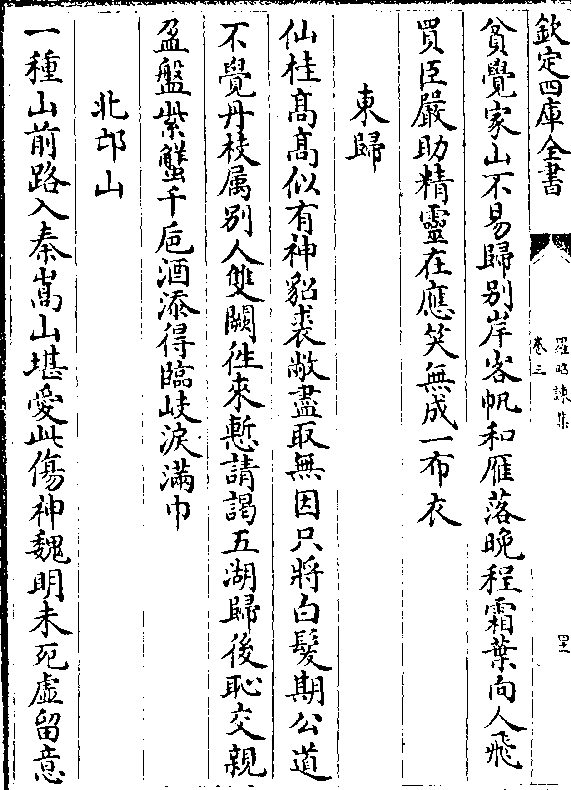 欽定四庫全書
羅昭諫集
卷三
貧覺家山不易歸别岸客帆和雁落晚程霜葉向人飛
買臣嚴助精靈在應笑無成一布衣
東歸
仙桂髙髙似有神貂裘敝盡取無因只將白髮期公道
不覺丹枝属别人雙闕徃來慙請謁五湖歸後恥交親
盈盤紫蟹千巵酒添得臨岐淚滿巾
北邙山
一種山前路入秦嵩山堪愛此傷神魏明未死虚留意